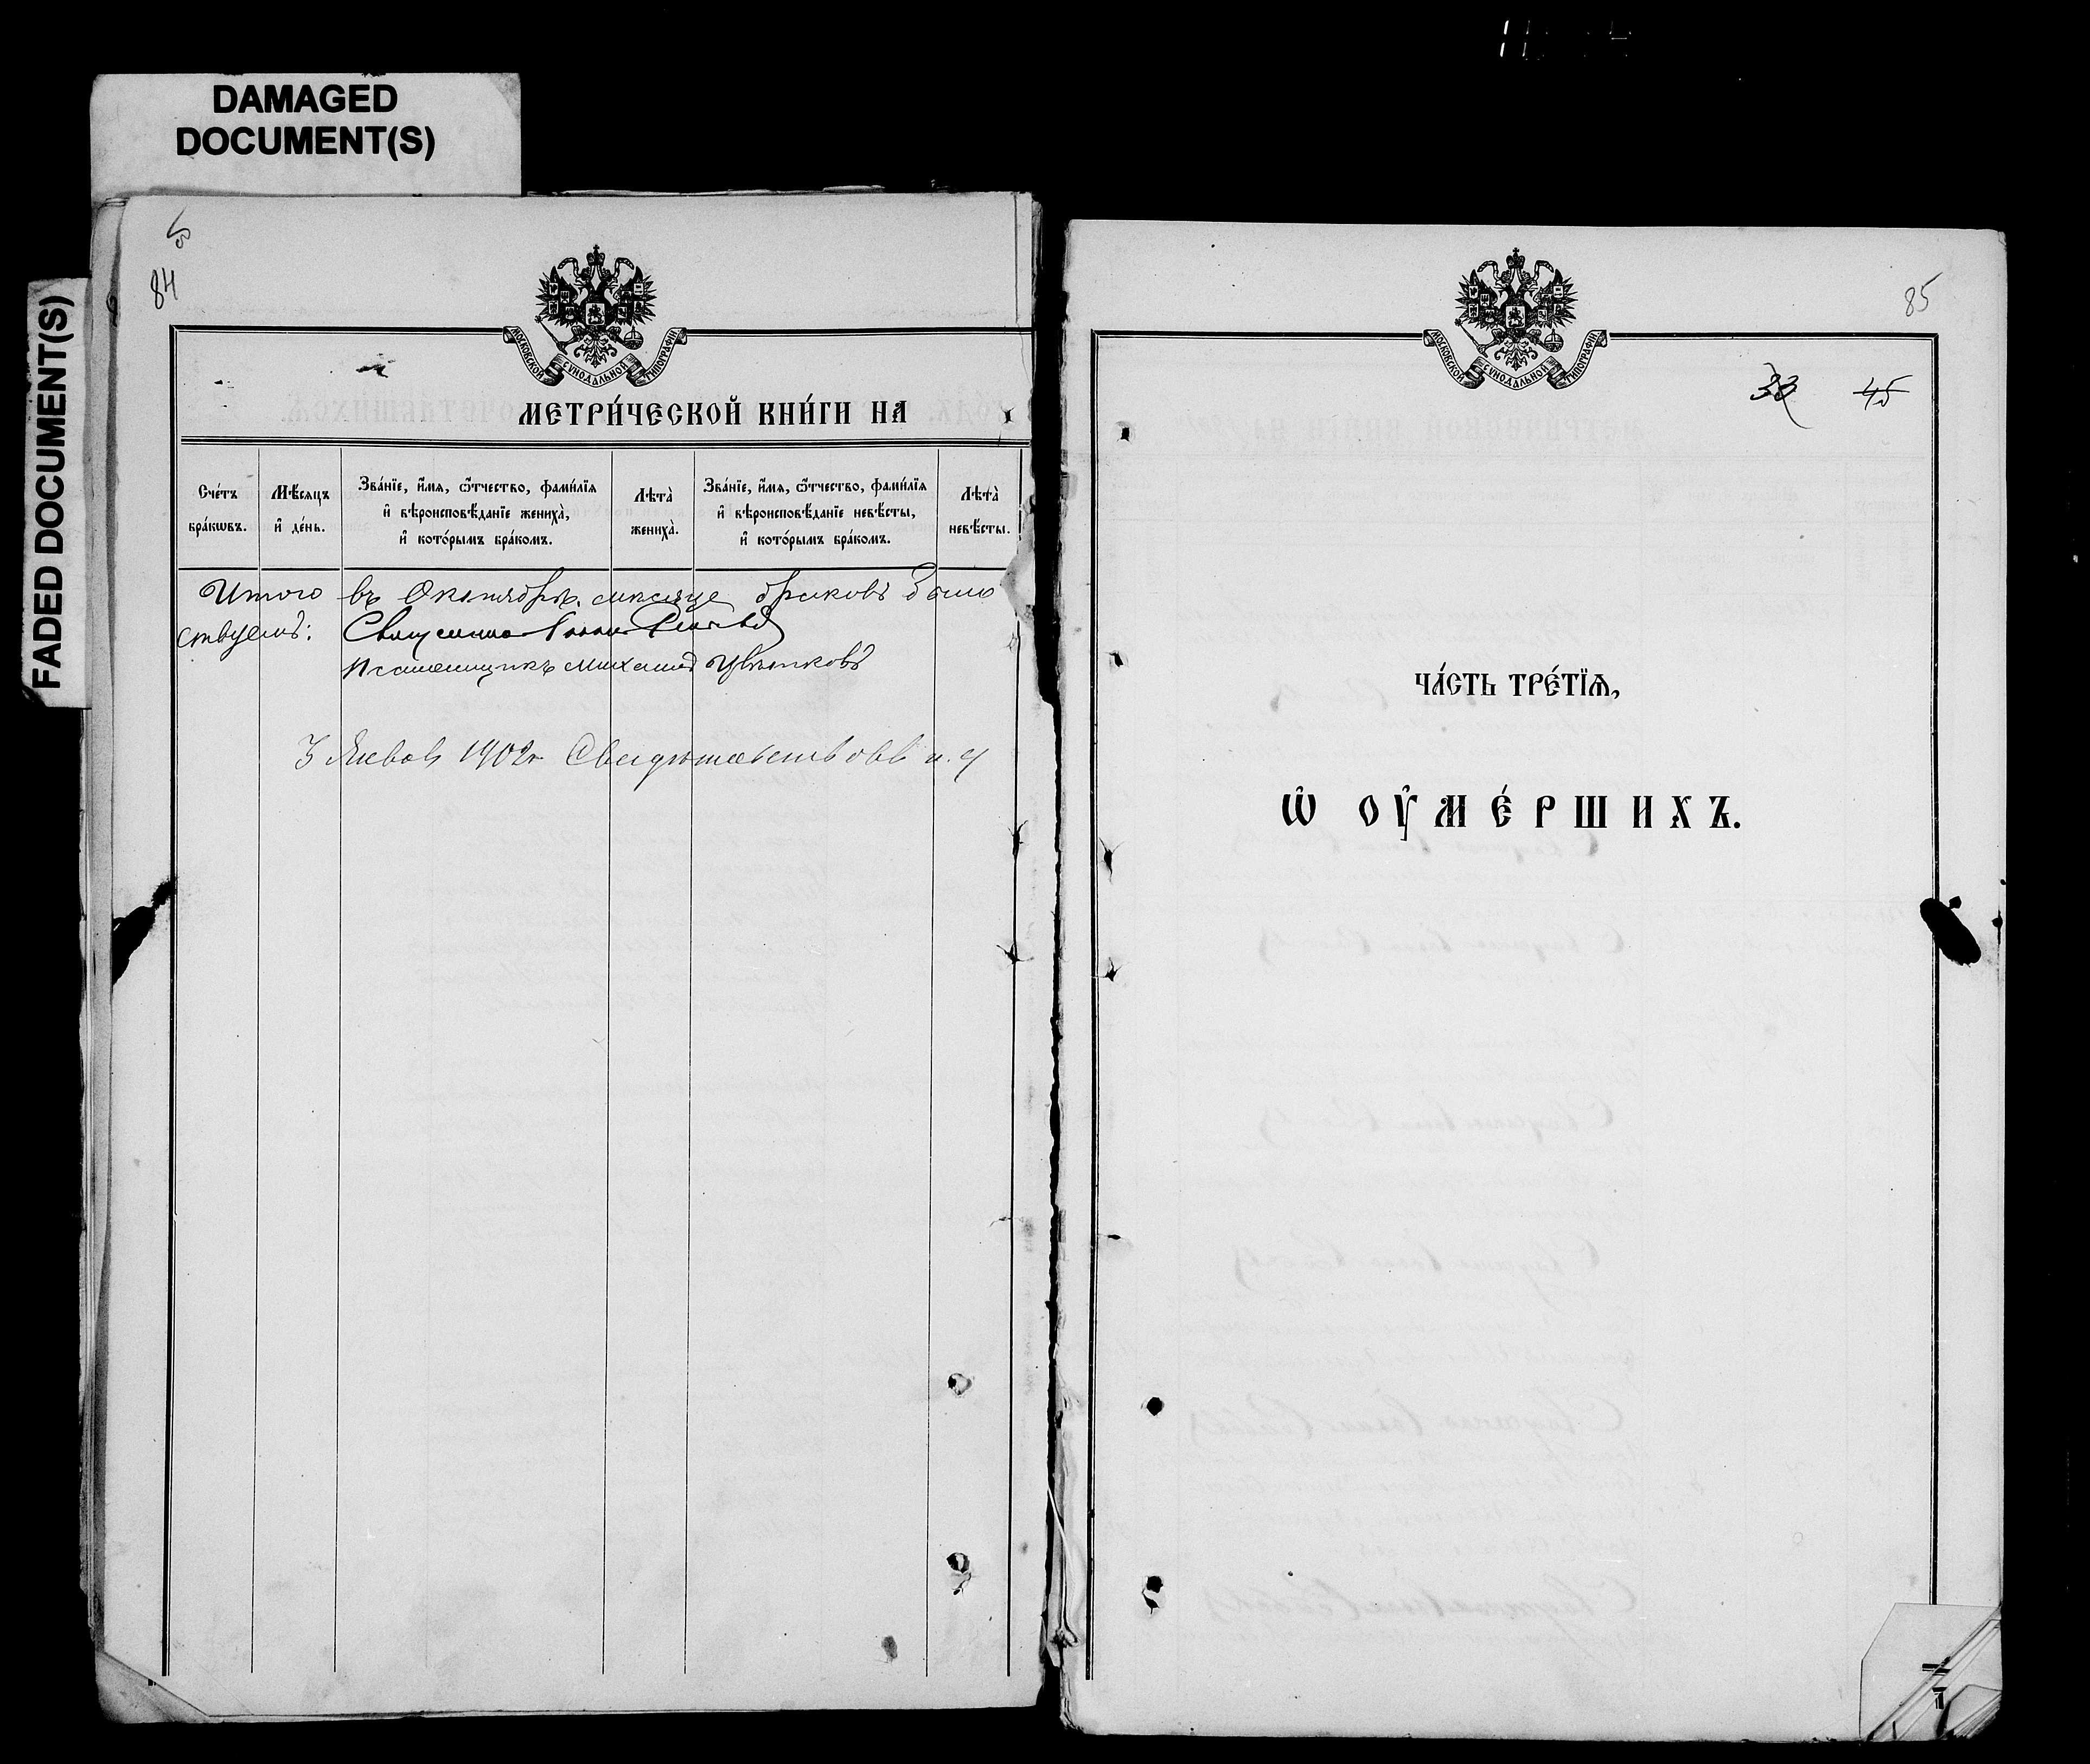 DAMAGED
DOCUMENT(S)
FADED DOCUMENT(S)
84
МОСКОВСКОЙ СѴНОДАЛЬНОЙ ТИПОГРАФІИ
МЕТРИ́ЧЕСКОЙ КНИ́ГИ НА
Сче́тъ бра́кѡвъ.
Мѣ́сяцъ и҆ де́нь.
Зва́нїе, и҆́мя, ѻ҆́тчество, фами́лїя
и҆ вѣроисповѣ́данїе жениха̀,
и҆ кото́рымъ бра́комъ.
Лѣта̀ жениха̀.
Зва́нїе, и҆́мя, ѻ҆́тчество, фами́лїя
и҆ вѣроисповѣ́данїе невѣ́сты,
и҆ кото́рымъ бра́комъ.
Лѣта̀ невѣ́сты.
Итого въ Октябрѣ мѣсяце браковъ
ствуемъ: Священникъ
Псаломщикъ Михаилъ Цвѣтковъ
1902г
85
МОСКОВСКОЙ СѴНОДАЛЬНОЙ ТИПОГРАФІИ
33 45
ЧА́СТЬ ТРЕ́ТЇѦ,
Ѡ҆ ОУ҆МЕ́РШИХЪ.